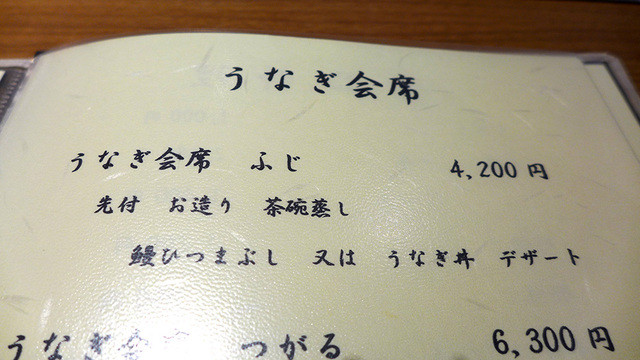 うなぎ会席
うなぎ会席 ふじ 4,200円
先付 お造り 茶碗蒸し
鰻ひつまぶし 又は うなぎ丼 デザート
うなぎ会席 つがる 6,300円